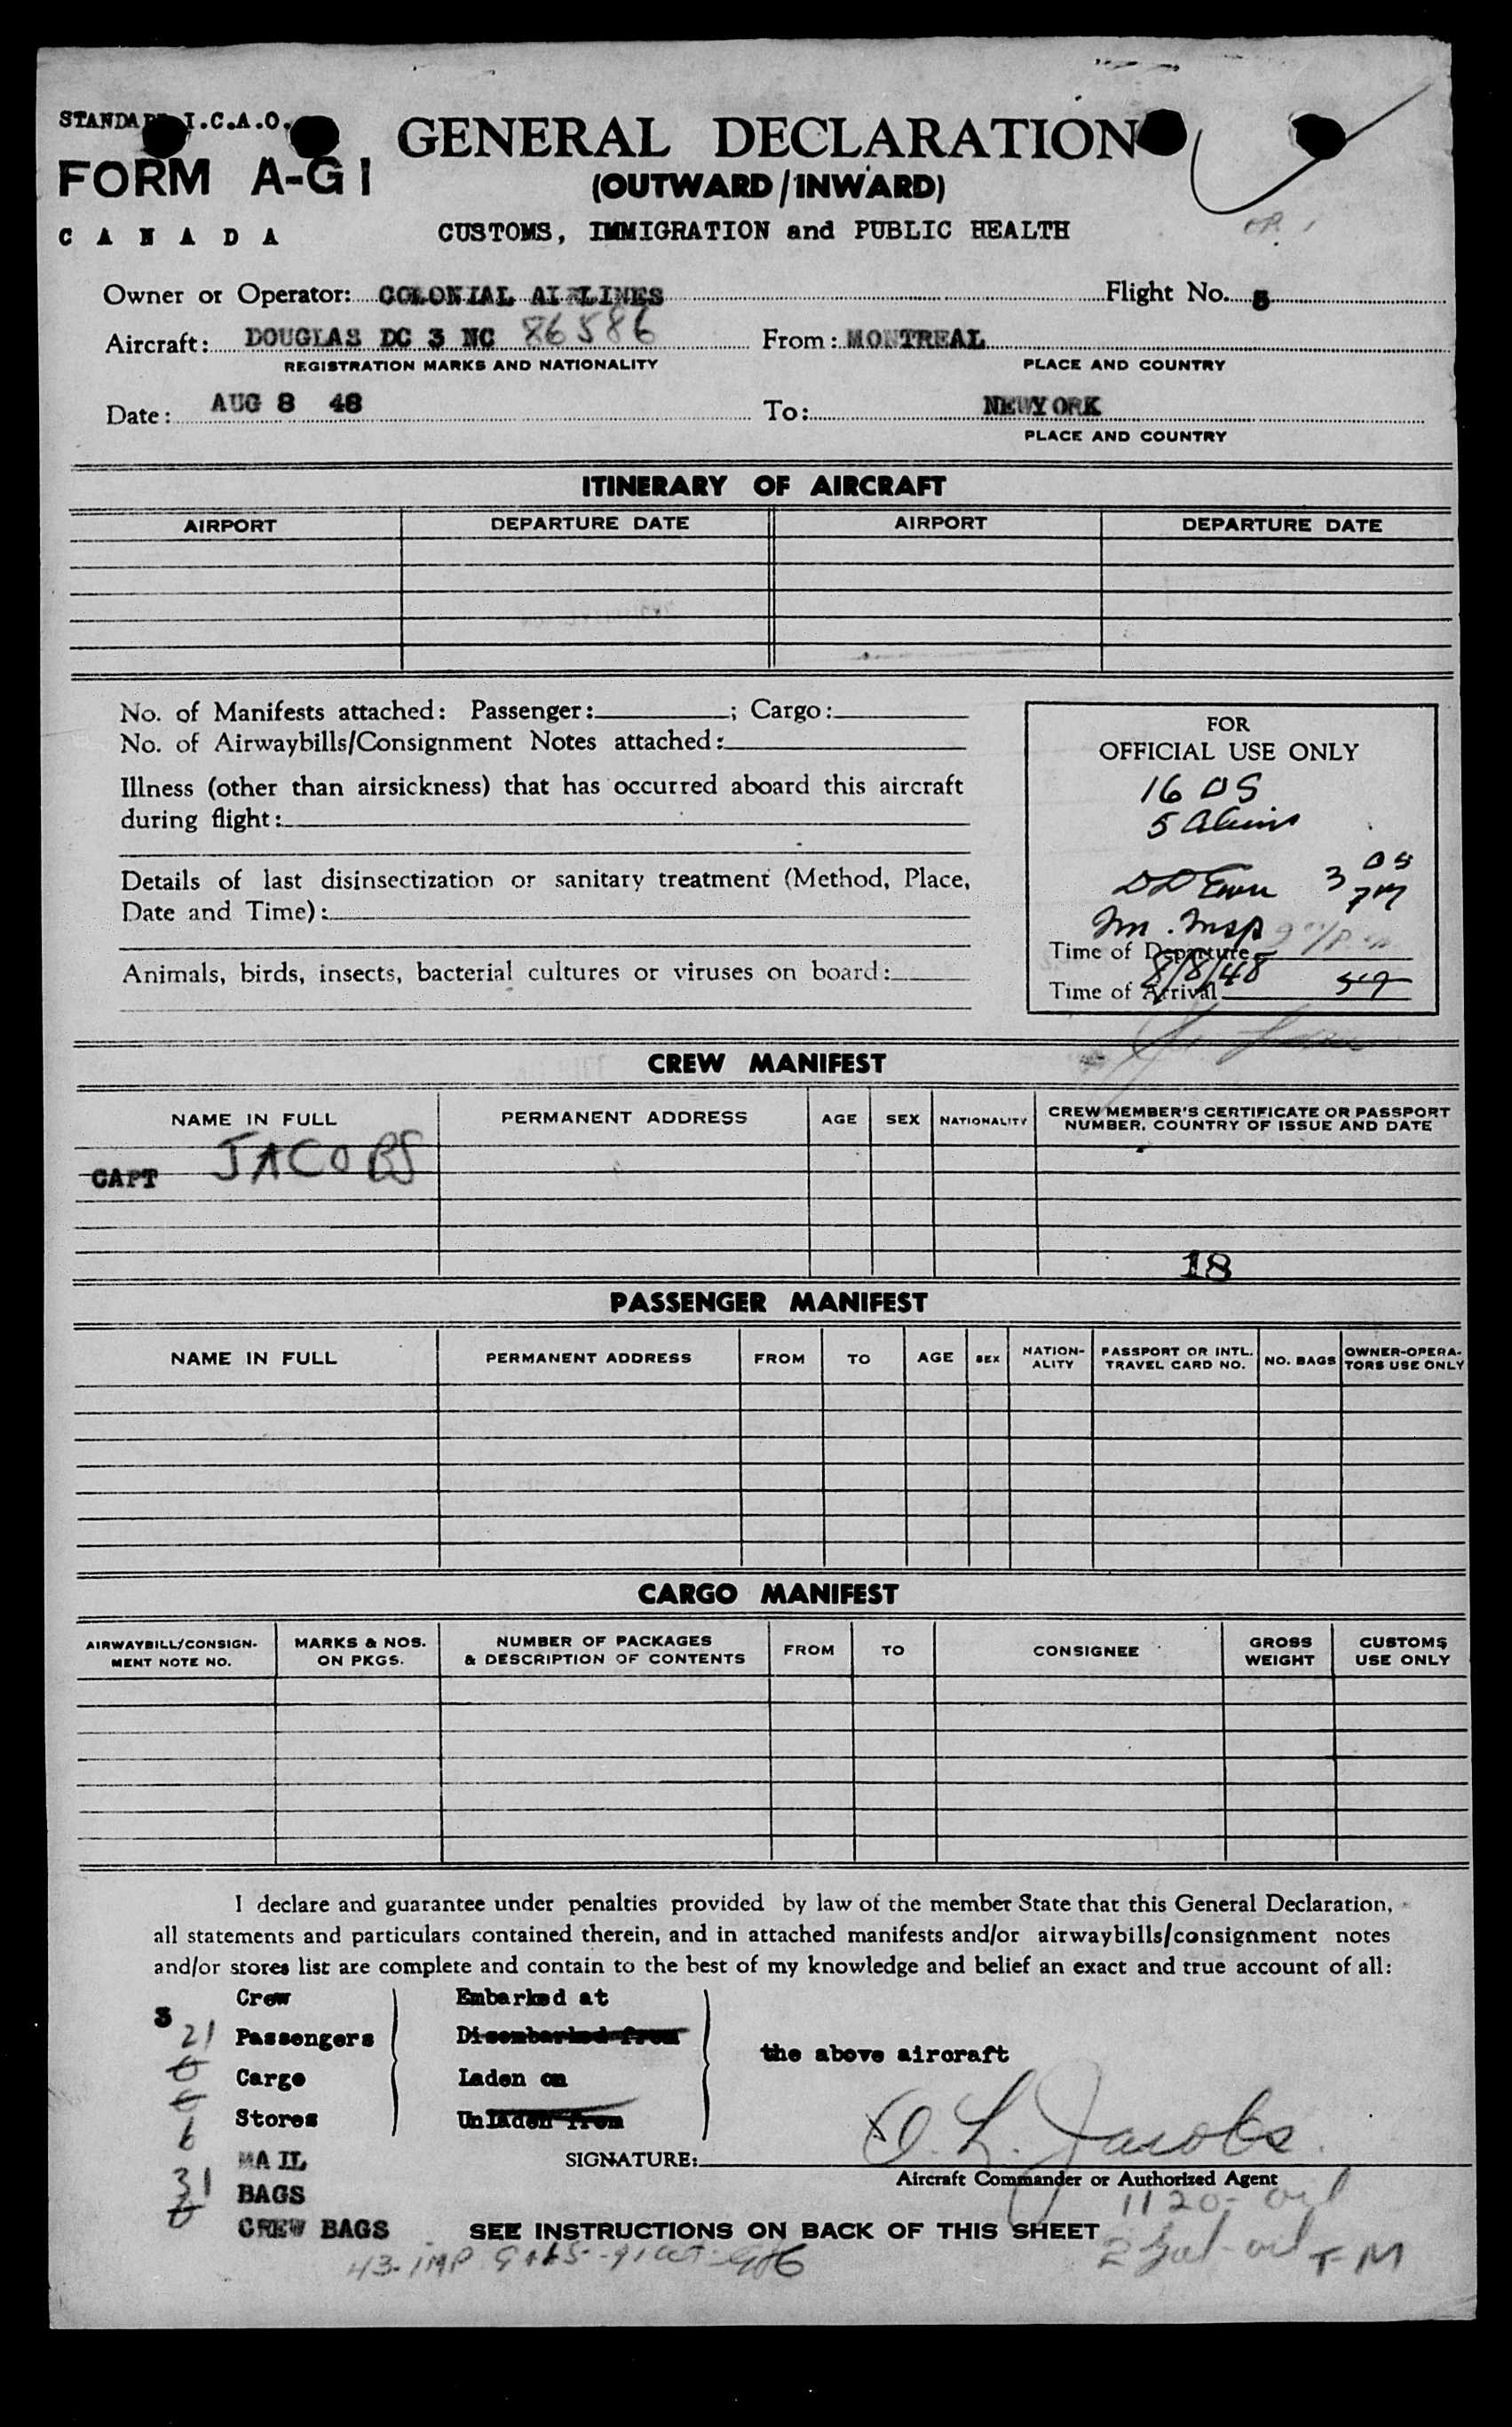 STANDARD I.C.A.O.
FORM A-G1
CANADA
GENERAL DECLARATION
(OUTWARD/INWARD)
CUSTOMS, IMMIGRATION and PUBLIC HEALTH
Owner or Operator: COLONIAL AIRLINES Flight No. 5
Aircraft: DOUGLAS DC 3 NC 86586 From: MONTREAL
REGISTRATION MARKS AND NATIONALITY PLACE AND COUNTRY
Date: AUG 8 48 To: NEWYORK
PLACE AND COUNTRY
ITINERARY OF AIRCRAFT
AIRPORT DEPARTURE DATE AIRPORT DEPARTURE DATE
No. of Manifests attached: Passenger: ; Cargo:
No. of Airwaybills/Consignment Notes attached:
Illness (other than airsickness) that has occurred aboard this aircraft
during flight:
Details of last disinsectization or sanitary treatment (Method, Place,
Date and Time):
Animals, birds, insects, bacterial cultures or viruses on board:
FOR
OFFICIAL USE ONLY
16 US
5 aliens
Im. Insp
Time of Departure
8/8/48
Time of Arrival
CREW MANIFEST
NAME IN FULL PERMANENT ADDRESS AGE SEX NATIONALITY CREW MEMBER'S CERTIFICATE OR PASSPORT
NUMBER, COUNTRY OF ISSUE AND DATE
CAPT JACOBS
18
PASSENGER MANIFEST
NAME IN FULL PERMANENT ADDRESS FROM TO AGE SEX NATION-
ALITY PASSPORT OR INTL.
TRAVEL CARD NO. NO. BAGS OWNER-OPERA-
TORS USE ONLY
CARGO MANIFEST
AIRWAYBILL/CONSIGN-
MENT NOTE NO. MARKS & NOS.
ON PKGS. NUMBER OF PACKAGES
& DESCRIPTION OF CONTENTS FROM TO CONSIGNEE GROSS
WEIGHT CUSTOMS
USE ONLY
I declare and guarantee under penalties provided by law of the member State that this General Declaration,
all statements and particulars contained therein, and in attached manifests and/or airwaybills/consignment notes
and/or stores list are complete and contain to the best of my knowledge and belief an exact and true account of all:
3 Crew Embarked at
21 Passengers Disembarked from
the above aircraft
Cargo Laden on
Stores Unladen from
MAIL
31 BAGS
CREW BAGS
SIGNATURE: O. L. Jacobs
Aircraft Commander or Authorized Agent
SEE INSTRUCTIONS ON BACK OF THIS SHEET
2 gal - oil T-M